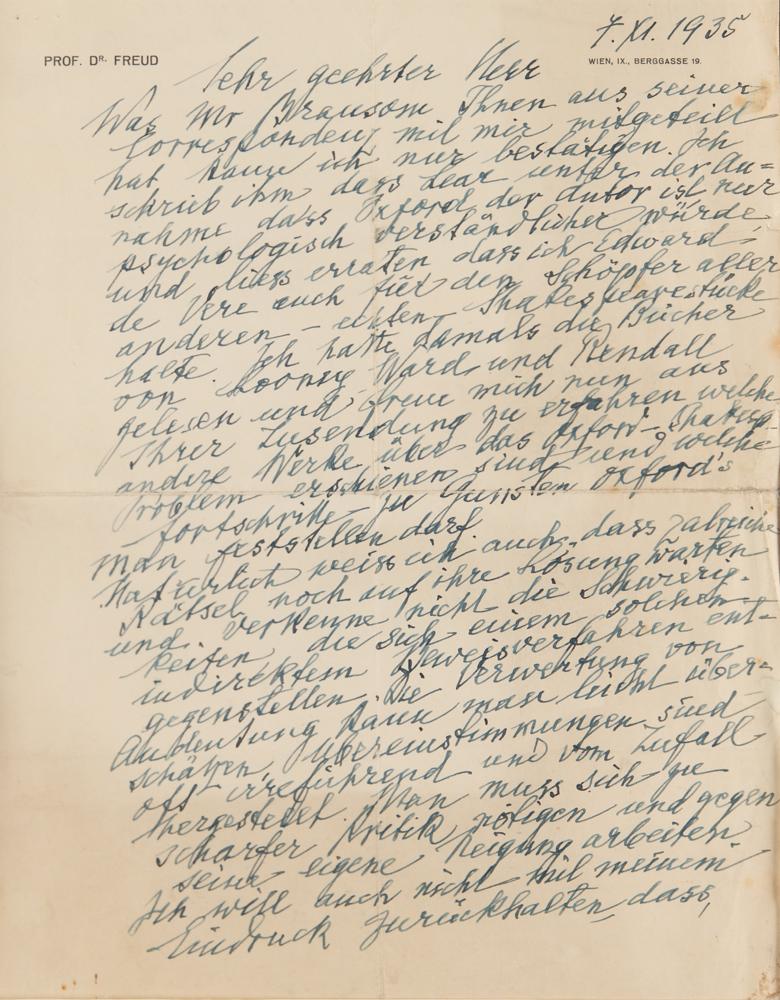 7. XI. 1935
PROF. DR. FREUD
WIEN, IX., BERGGASSE 19.
Sehr geehrter Herr
Was Mr Bransom Ihnen aus seiner
Correspondenz mit mir mitgeteilt
hat kann ich nur bestätigen. Ich
schrieb ihm dass Lear unter der An=
nahme dass Oxford der Autor ist nur
psychologisch verständlicher würde,
und liess erraten dass ich Edward
de Vere auch für den Schöpfer aller
anderen – echten – Shakespearestücke
halte. Ich hatte damals die Bücher
von Looney, Ward und Rendall
gelesen und freue mich nun aus
Ihrer Zusendung zu erfahren welche
andere Werke über das Oxford-Shakesp-
Problem erschienen sind und welche
Fortschritte zu Gunsten Oxford's
man feststellen darf.
Natürlich weiss ich auch, dass zalreiche
Rätsel noch auf ihre Lösung warten
und verkenne nicht die Schwierig-
keiten die sich einem solchen
indirektem Beweisverfahren ent=
gegenstellen. Die Verwertung von
Andeutung kann man leicht über=
schätzen, Übereinstimmungen sind
oft irreführend und vom Zufall
hergestellt. Man muss sich zu
scharfer Kritik nötigen und gegen
seine eigene Neigung arbeiten.
Ich will auch nicht mit meinem
Eindruck zurückhalten, dass,